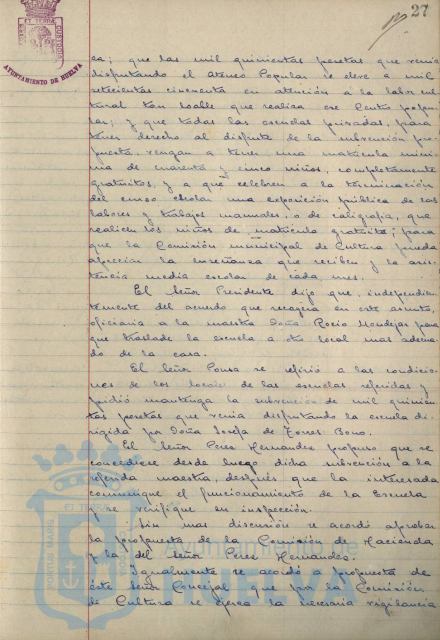 27
AYUNTAMIENTO DE HUELVA
ca; que las mil quinientas pesetas que venia
disfrutando el Ateneo Popular se eleve a mil
setecientas cincuenta en atención a la labor cul-
tural tan loable que realiza ese Centro popu-
lar; y que todas las escuelas privadas, para
tener derecho al disfrute de la subvención pro-
puesta, vengan a tener una matrícula mini-
ma de cuarenta y cinco niños, completamente
gratuitos, y a que celebren a la terminación
del curso escolar una exposición pública de las
labores y trabajos manuales, o de caligrafía, que
realicen los niños de matrícula gratuita; para
que la Comisión municipal de Cultura pueda
apreciar la enseñanza que reciben y la asis-
tencia media escolar de cada mes.
El Señor Presidente dijo que, independien-
temente del acuerdo que recayera en este asunto,
oficiaria a la maestra Doña Rocio Mondejar para
que traslade la escuela a otro local mas adecua-
do de la casa.
El Señor Ponsa se refirió a las condicio-
nes de los locales de las escuelas referidas y
pidió mantenga la subvención de mil quinien-
tas pesetas que venia disfrutando la escuela di-
rigida por Doña Josefa de Torres Bono.
El Señor Perez Hernandez propuso que se
concediese desde luego dicha subvención a la
referida maestra, después que la interesada
comunique el funcionamiento de la Escuela
y se verifique en inspección.
Sin mas discusión se acordó aprobar
la propuesta de la Comisión de Hacienda
y la del Señor Perez Hernandez.
Igualmente se acordó a propuesta de
éste Señor Concejal que por la Comisión
de Cultura se ejerza la necesaria vigilancia
Ayuntamiento de
HUELVA